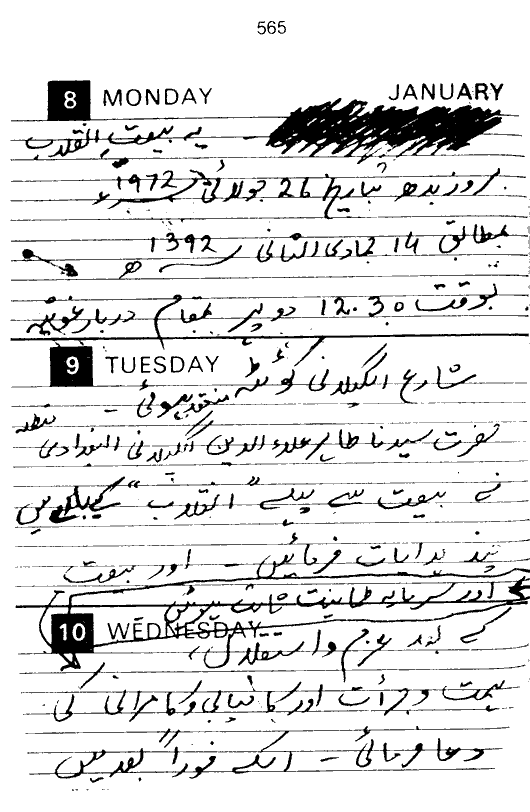 565
8 MONDAY JANUARY
یہ بیعتِ القلاب
بروز بدھ بتاریخ 26 جولائی 1972ء
بمطابق 14 جمادی الثانی 1392ھ
بوقت 12.30 دوپہر بمقام دربار غوثیہ
9 TUESDAY
شارع الگیلانی کوئٹہ منعقد ہوئی -
حضرت سیدنا طاہر علاءالدین الگیلانی البغدادی مدظلہ
نے بیعت سے پہلے "القلاب" کیلئے
چند ہدایات فرمائیں - اور بیعت
اور سرمایہ طمانیت ثابت ہوئیں
10 WEDNESDAY
کے بعد عزم و استقلال،
ہمت و جرأت اور کامیابی و کامرانی کی
دعا فرمائی - اسکے فوراً بعد میں